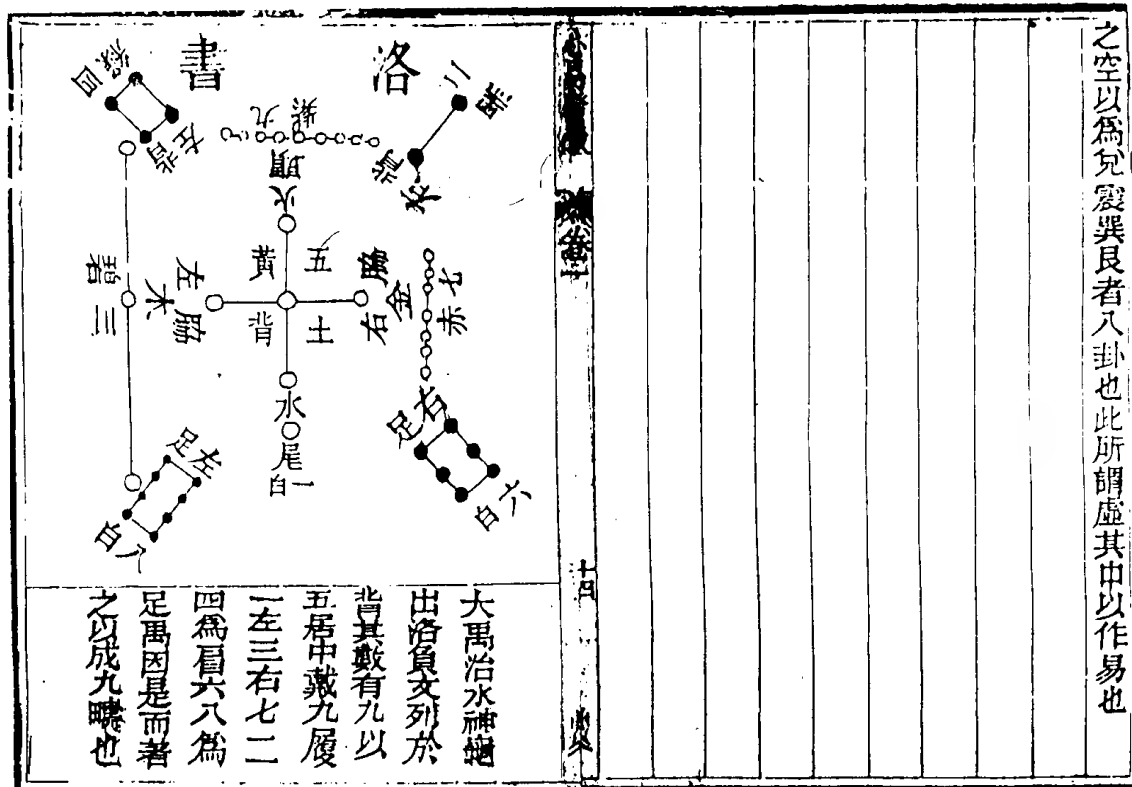 之空以爲兌震巽艮者八卦也此所謂虛其中以作易也
卷
十四
洛書
二黑
背
九紫
頭
火
四綠
左背
七赤
右脇
金
五黃
土
背
左脇
木
三碧
水
尾
一白
右足
六白
左足
八白
大禹治水神龜
出洛負文列於
背其數有九以
五居中戴九履
一左三右七二
四爲肩六八爲
足禹因是而著
之以成九疇也